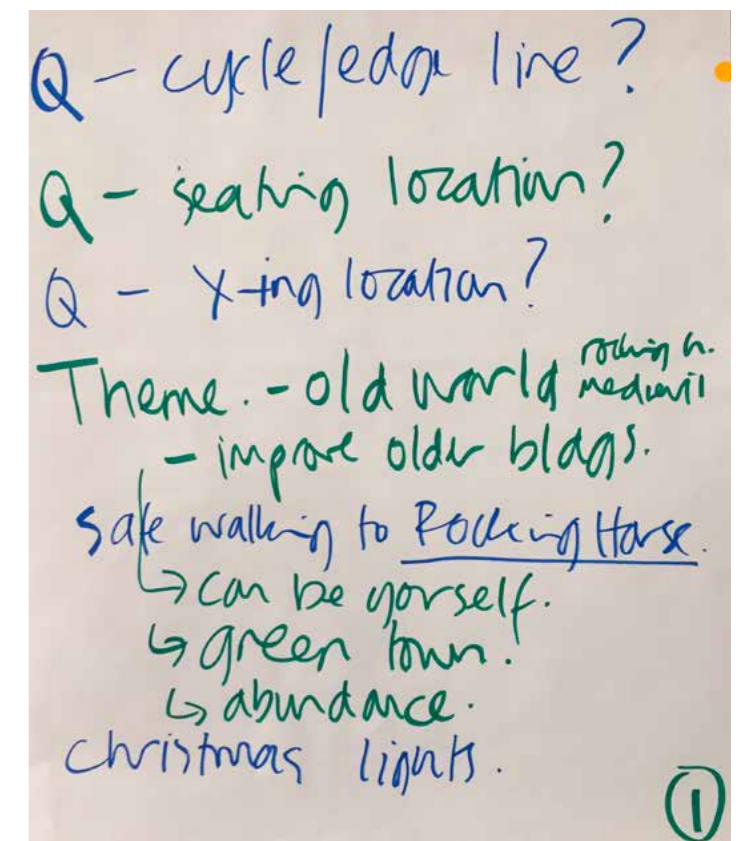 Q - cycle/edge line?
Q - seating location?
Q - X-ing location?
Theme. - old world rocking h. medievil
- improve older bldgs.
safe walking to Rocking Horse.
↳ can be yorself.
↳ green town.
↳ abundance.
christmas lights.
1